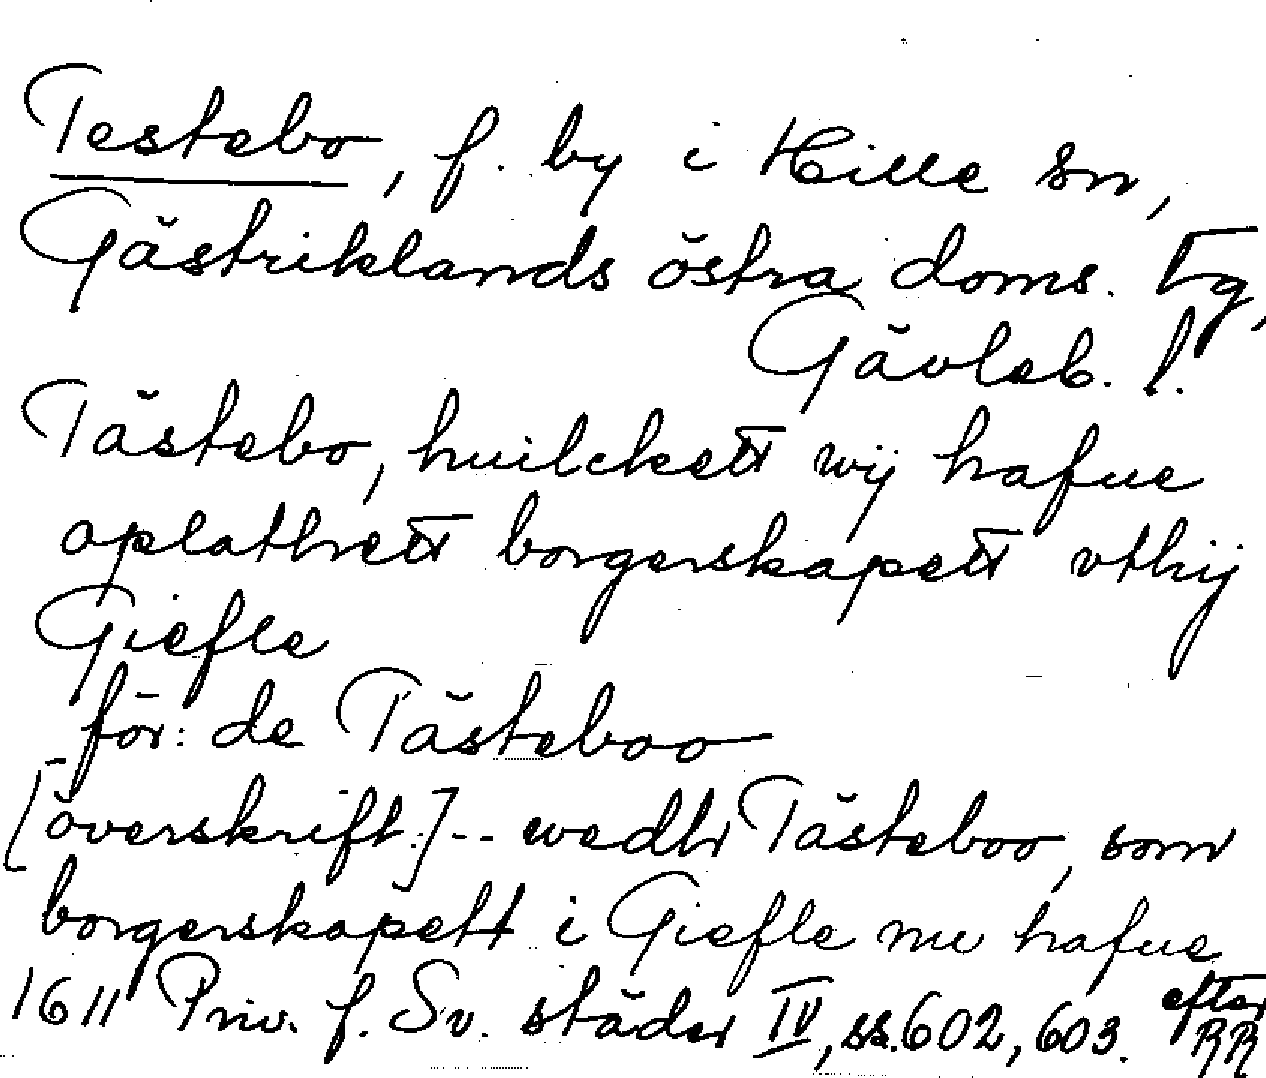 Testebo, f. by i Hille sn,
Gästriklands östra doms. tg,
Gävleb. l.
Tästebo, huilckett wij hafue
oplathett borgerskapett vthij
Giefle
för: de Tästeboo
[överskrift.] -- wedhr Tästeboo, som
borgerskapett i Giefle nu hafue
1611 Priv. f. Sv. städer IV, ss. 602, 603. efter RR